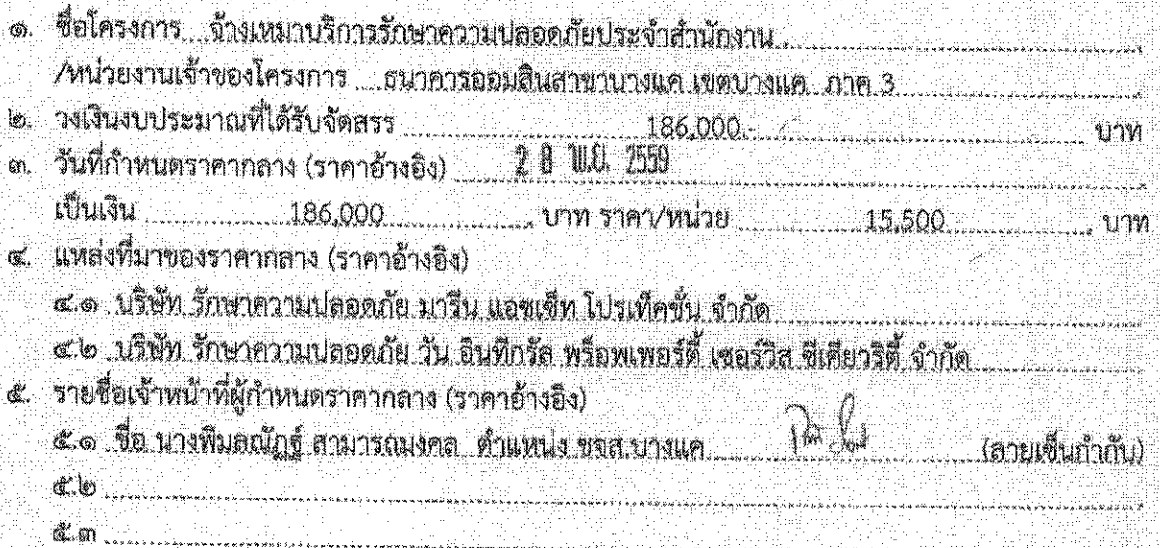 ๑. ชื่อโครงการ จ้างเหมาบริการรักษาความปลอดภัยประจำสำนักงาน
/หน่วยงานเจ้าของโครงการ ธนาคารออมสินสาขาบางแค เขตบางแค ภาค 3
๒. วงเงินงบประมาณที่ได้รับจัดสรร 186,000.- บาท
๓. วันที่กำหนดราคากลาง (ราคาอ้างอิง) 28 พ.ย. 2559
เป็นเงิน 186,000 บาท ราคา/หน่วย 15,500 บาท
๔. แหล่งที่มาของราคากลาง (ราคาอ้างอิง)
๔.๑ บริษัท รักษาความปลอดภัย มารีน แอซเซ็ท โปรเท็คชั่น จำกัด
๔.๒ บริษัท รักษาความปลอดภัย วัน อินทิกรัล พร็อพเพอร์ตี้ เซอร์วิส ซีเคียวริตี้ จำกัด
๕. รายชื่อเจ้าหน้าที่ผู้กำหนดราคากลาง (ราคาอ้างอิง)
๕.๑ ชื่อ นางพิมลณัฏฐ์ สามารถมงคล ตำแหน่ง ชจส.บางแค (ลายเซ็นกำกับ)
๕.๒
๕.๓